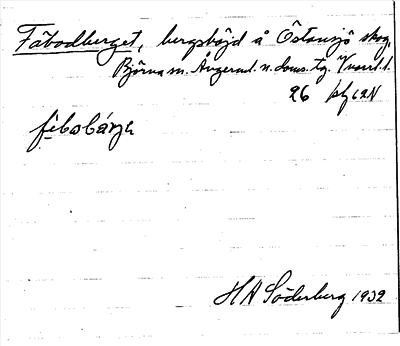 Fäbodberget, bergshöjd å Östansjö skog,
Björna sn. Ångerml. n. doms. tg. Vnorrl. l.
26
fèbobárje
H A Söderberg 1932